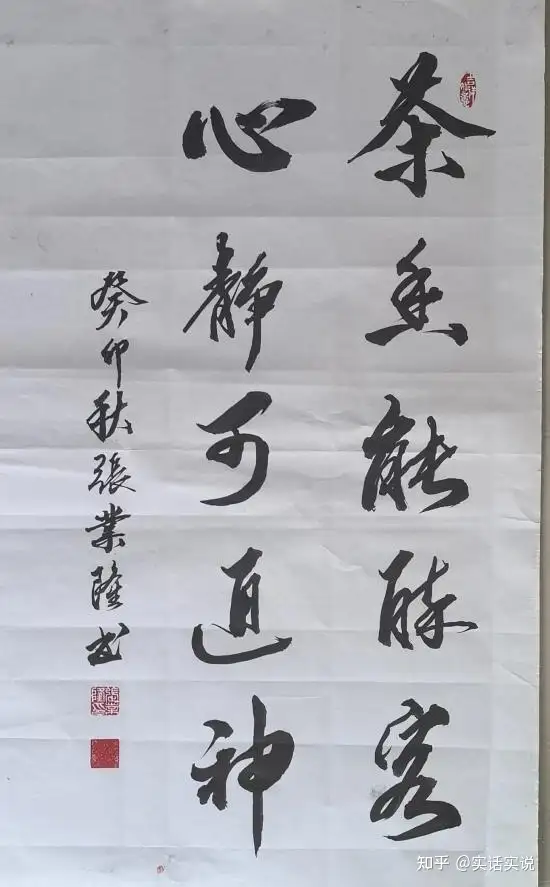 茶香能醉客
心靜可通神
癸卯秋張業隆书
知乎 @实话实说